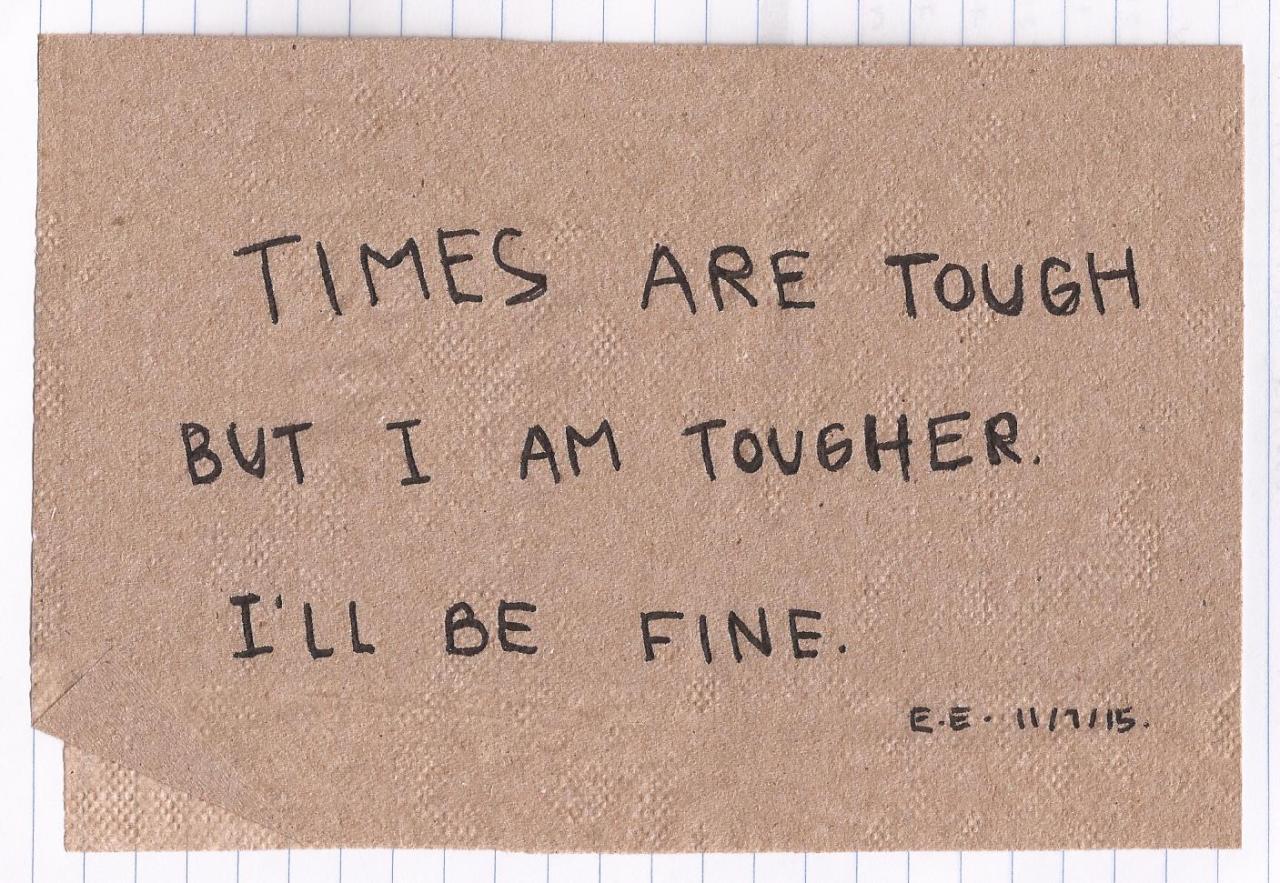 TIMES ARE TOUGH
BUT I AM TOUGHER.
I'LL BE FINE.
E.E. 11/7/15.